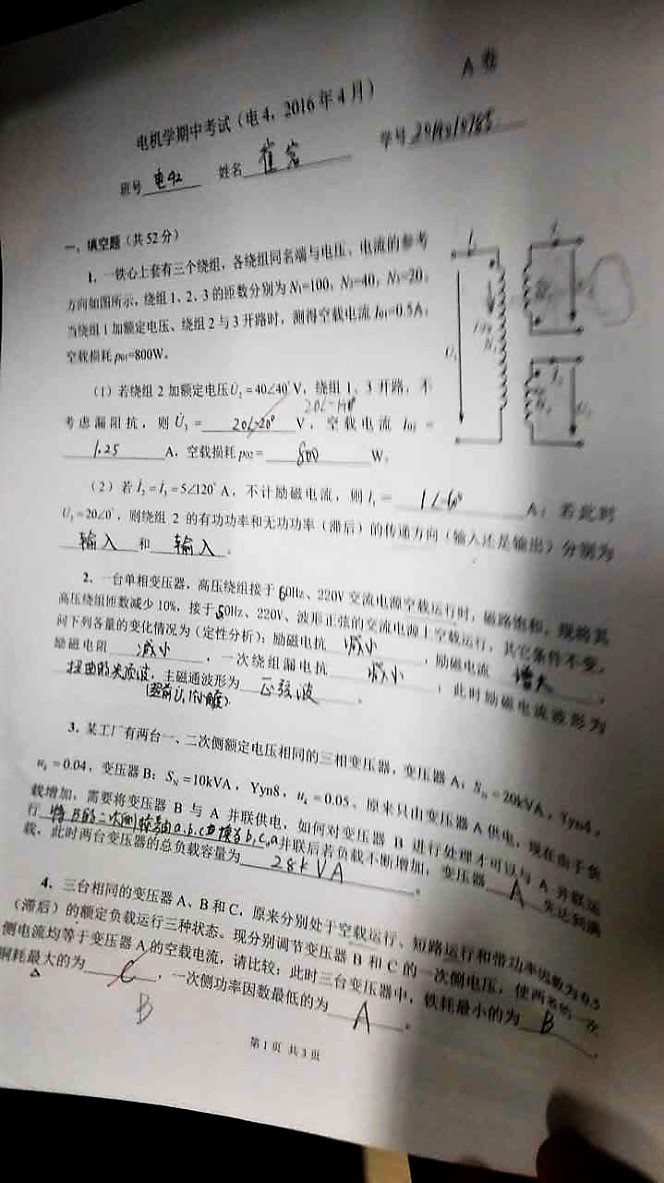 A 卷
电机学期中考试（电4，2016年4月）
班号 电42 姓名 学号
一、填空题（共52分）
1. 一铁心上套有三个绕组，各绕组同名端与电压、电流的参考
方向如图所示，绕组1、2、3的匝数分别为N₁=100，N₂=40，N₃=20。
当绕组1加额定电压、绕组2与3开路时，测得空载电流I₀₁=0.5A，
空载损耗p₀₁=800W。
（1）若绕组2加额定电压U̇₂=40∠40°V，绕组1、3开路，不
20∠-140°
考虑漏阻抗，则U̇₃= 20∠-20° V，空载电流I₀₂=
1.25 A，空载损耗p₀₂= 800 W。
（2）若İ₂=İ₃=5∠120°A，不计励磁电流，则İ₁= 1∠-60° A；若此时
U̇₁=20∠0°，则绕组2的有功功率和无功功率（滞后）的传递方向（输入还是输出）分别为
输入 和 输入 。
2. 一台单相变压器，高压绕组接于60Hz、220V交流电源空载运行时，磁路饱和，现将其
高压绕组匝数减少10%，接于50Hz、220V、波形正弦的交流电源上空载运行，其它条件不变，
问下列各量的变化情况为（定性分析）：励磁电抗 减小 ，励磁电流 增大 ，
励磁电阻 减小 ，一次绕组漏电抗 减小 ；此时励磁电流波形为
扭曲的尖顶波，主磁通波形为 正弦波 。
3. 某工厂有两台一、二次侧额定电压相同的三相变压器，变压器A：S_N=20kVA，Yyn4，
u_k=0.04，变压器B：S_N=10kVA，Yyn8，u_k=0.05。原来只由变压器A供电，现在由于负
载增加，需要将变压器B与A并联供电，如何对变压器B进行处理才可以与A并联运
行 将B的二次侧 a.b.c b.c.a 并联后若负载不断增加，变压器 A 先达到满
载，此时两台变压器的总负载容量为 28kVA 。
4. 三台相同的变压器A、B和C，原来分别处于空载运行、短路运行和带功率因数为0.5
（滞后）的额定负载运行三种状态。现分别调节变压器B和C的一次侧电压，使两者的一次
侧电流均等于变压器A的空载电流，请比较：此时三台变压器中，铁耗最小的为 B ，
铜耗最大的为 C ，一次侧功率因数最低的为 A 。
B
第1页 共3页